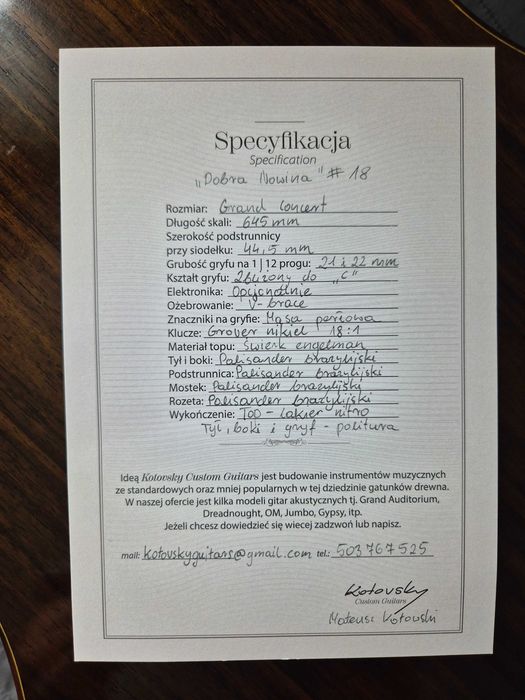 Specyfikacja
Specification
"Dobra Nowina" # 18
Rozmiar: Grand Concert
Długość skali: 645 mm
Szerokość podstrunnicy
przy siodełku: 44,5 mm
Grubość gryfu na 1 | 12 progu: 21 i 22 mm
Kształt gryfu: Zbliżony do "C"
Elektronika: Opcjonalnie
Ożebrowanie: V-brace
Znaczniki na gryfie: Masa perłowa
Klucze: Grover nikiel 18:1
Materiał topu: Świerk engelman
Tył i boki: Palisander brazylijski
Podstrunnica: Palisander brazylijski
Mostek: Palisander brazylijski
Rozeta: Palisander brazylijski
Wykończenie: TOD - Lakier nitro
Tył, boki i gryf - politura
Ideą Kotovsky Custom Guitars jest budowanie instrumentów muzycznych
ze standardowych oraz mniej popularnych w tej dziedzinie gatunków drewna.
W naszej ofercie jest kilka modeli gitar akustycznych tj. Grand Auditorium,
Dreadnought, OM, Jumbo, Gypsy, itp.
Jeżeli chcesz dowiedzieć się wiecej zadzwoń lub napisz.
mail: kotovskyguitars@gmail.com tel.: 503 767 525
Kotovsky
Custom Guitars
Mateusz Kotowski